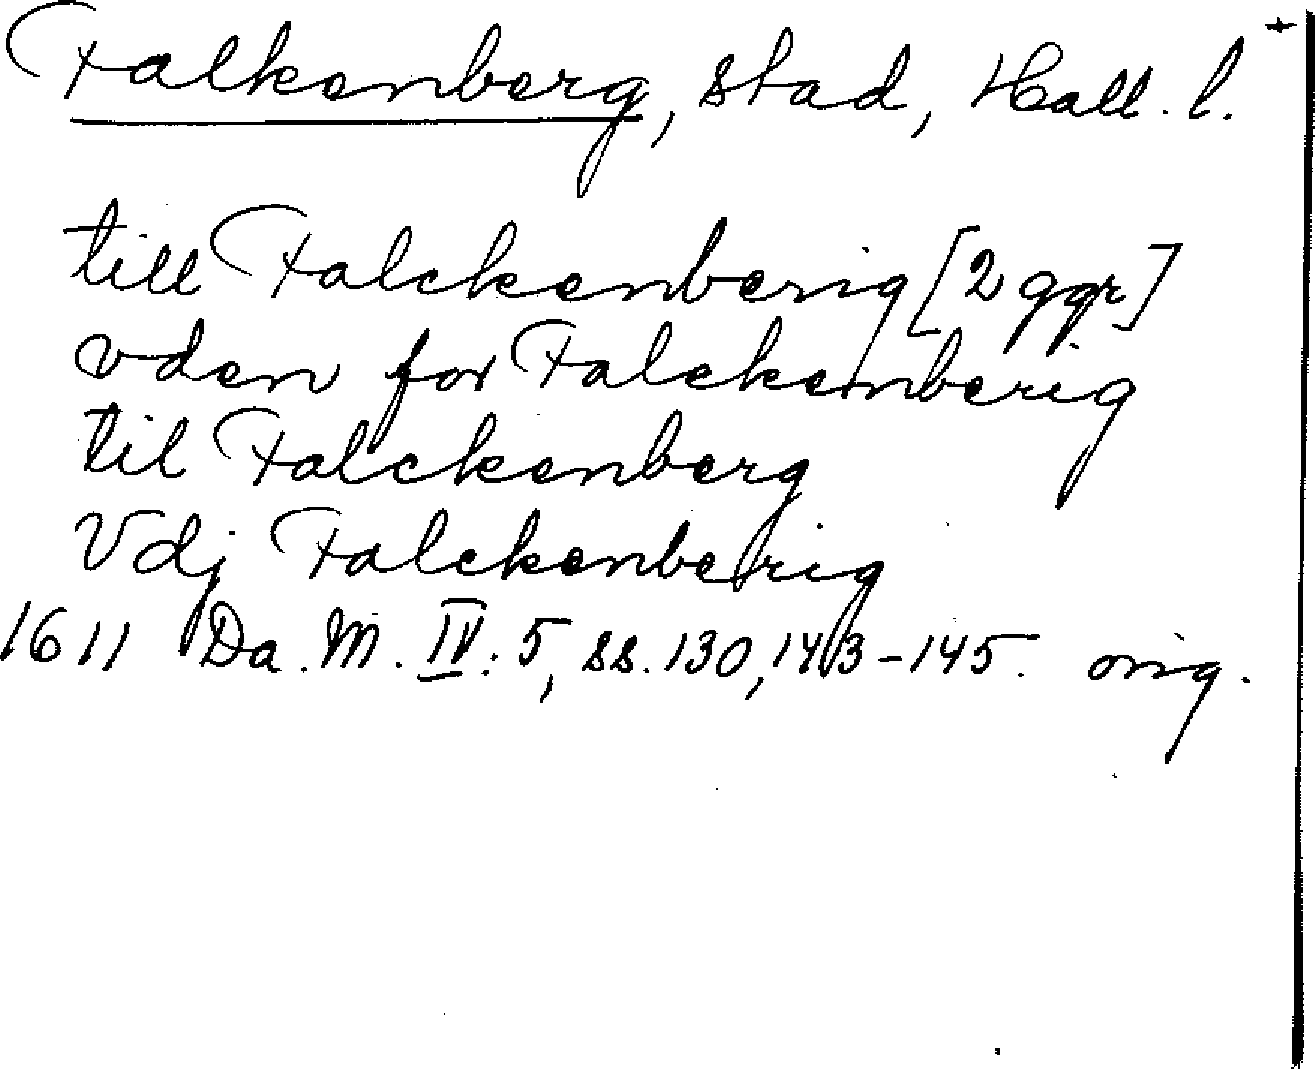 Falkenberg, stad, Hall. l. +
till Falckenberig [2 ggr]
vden for Falckenberig
til Falckenberg
Vdj Falckenberig
1611 Da. M. IV: 5, ss. 130, 143-145. orig.